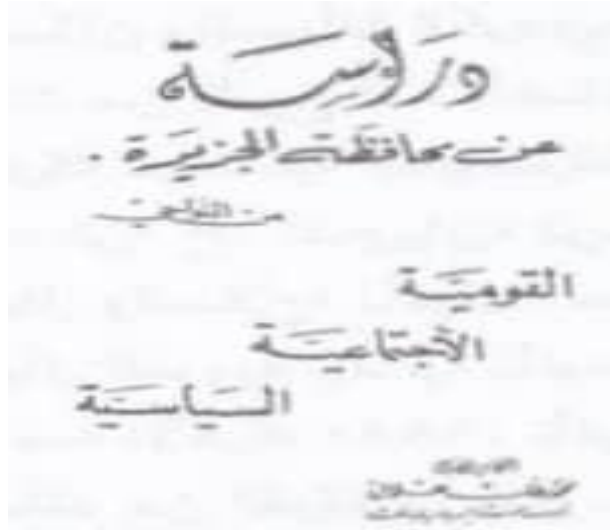 دراسة
عن محافظة الجزيرة .
من النواحي
القومية
الاجتماعية
السياسية